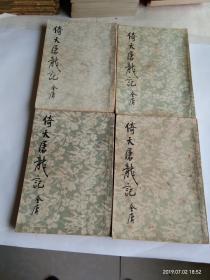 倚天屠龍記 金庸
倚天屠龍記 金庸
倚天屠龍記 金庸
倚天屠龍記 金庸
2019.07.02 18:52